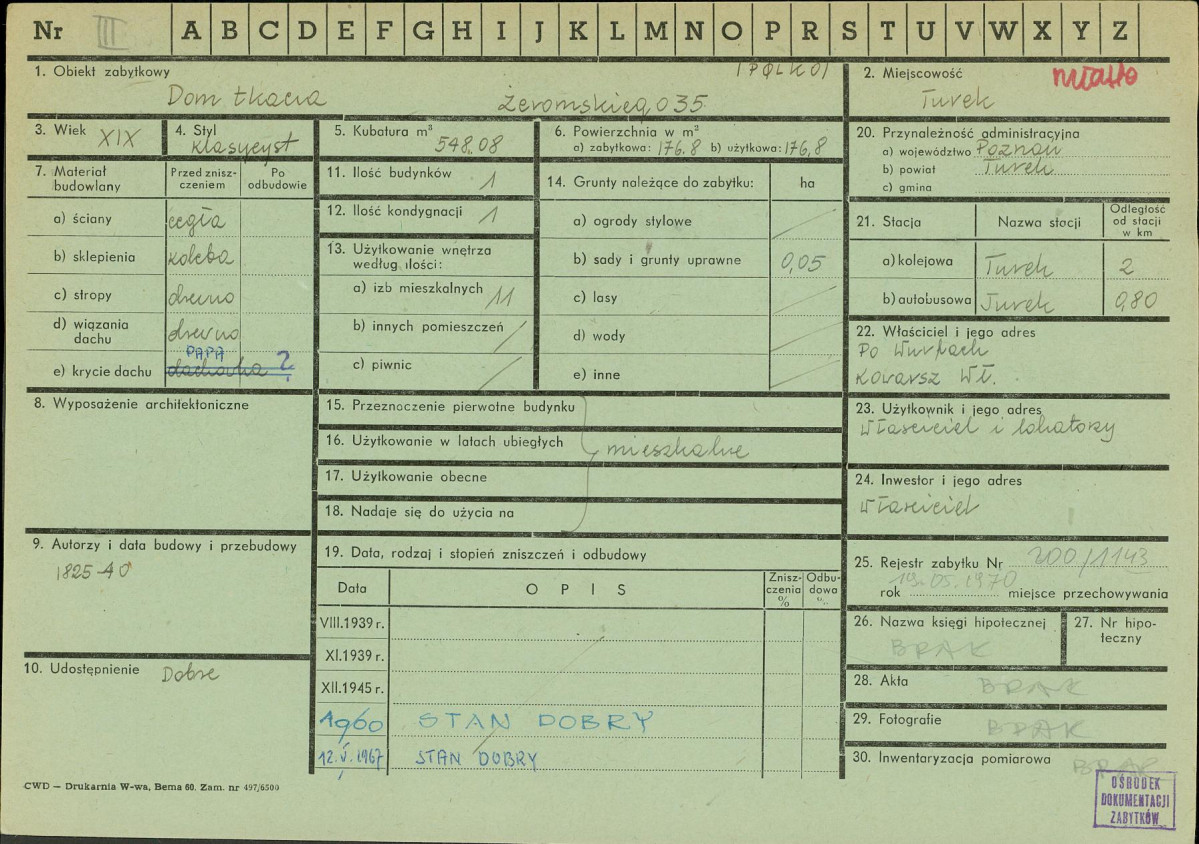 Nr III A B C D E F G H I J K L M N O P R S T U V W X Y Z
1. Obiekt zabytkowy
Dom tkacza Żeromskiego 35
2. Miejscowość miasto
Turek
3. Wiek XIX
4. Styl
klasycyst
5. Kubatura m³
548.08
6. Powierzchnia w m²
a) zabytkowa: 176.8 b) użytkowa: 176,8
7. Materiał budowlany
Przed zniszczeniem
Po odbudowie
a) ściany cegła
b) sklepienia koleba
c) stropy drewno
d) wiązania dachu drewno
PAPA
e) krycie dachu dachówka ?
8. Wyposażenie architektoniczne
9. Autorzy i data budowy i przebudowy
1825-40
10. Udostępnienie Dobre
11. Ilość budynków 1
12. Ilość kondygnacji 1
13. Użytkowanie wnętrza
według ilości:
a) izb mieszkalnych 11
b) innych pomieszczeń /
c) piwnic /
14. Grunty należące do zabytku: ha
a) ogrody stylowe
b) sady i grunty uprawne 0,05
c) lasy
d) wody
e) inne
15. Przeznaczenie pierwotne budynku
16. Użytkowanie w latach ubiegłych
mieszkalne
17. Użytkowanie obecne
18. Nadaje się do użycia na
19. Data, rodzaj i stopień zniszczeń i odbudowy
Data OPIS Zniszczenia % Odbudowa %
VIII.1939 r.
XI.1939 r.
XII.1945 r.
1960 STAN DOBRY
12.V.1967 STAN DOBRY
20. Przynależność administracyjna
a) województwo Poznań
b) powiat Turek
c) gmina
21. Stacja Nazwa stacji Odległość od stacji w km
a) kolejowa Turek 2
b) autobusowa Turek 0,80
22. Właściciel i jego adres
Po
Wł.
23. Użytkownik i jego adres
właściciel i lokatorzy
24. Inwestor i jego adres
właściciel
25. Rejestr zabytku Nr 200/1143
19.05.1970
rok miejsce przechowywania
26. Nazwa księgi hipotecznej
BRAK
27. Nr hipoteczny
28. Akta BRAK
29. Fotografie BRAK
30. Inwentaryzacja pomiarowa
BRAK
CWD — Drukarnia W-wa, Bema 60. Zam. nr 497/6500
OŚRODEK
DOKUMENTACJI
ZABYTKÓW